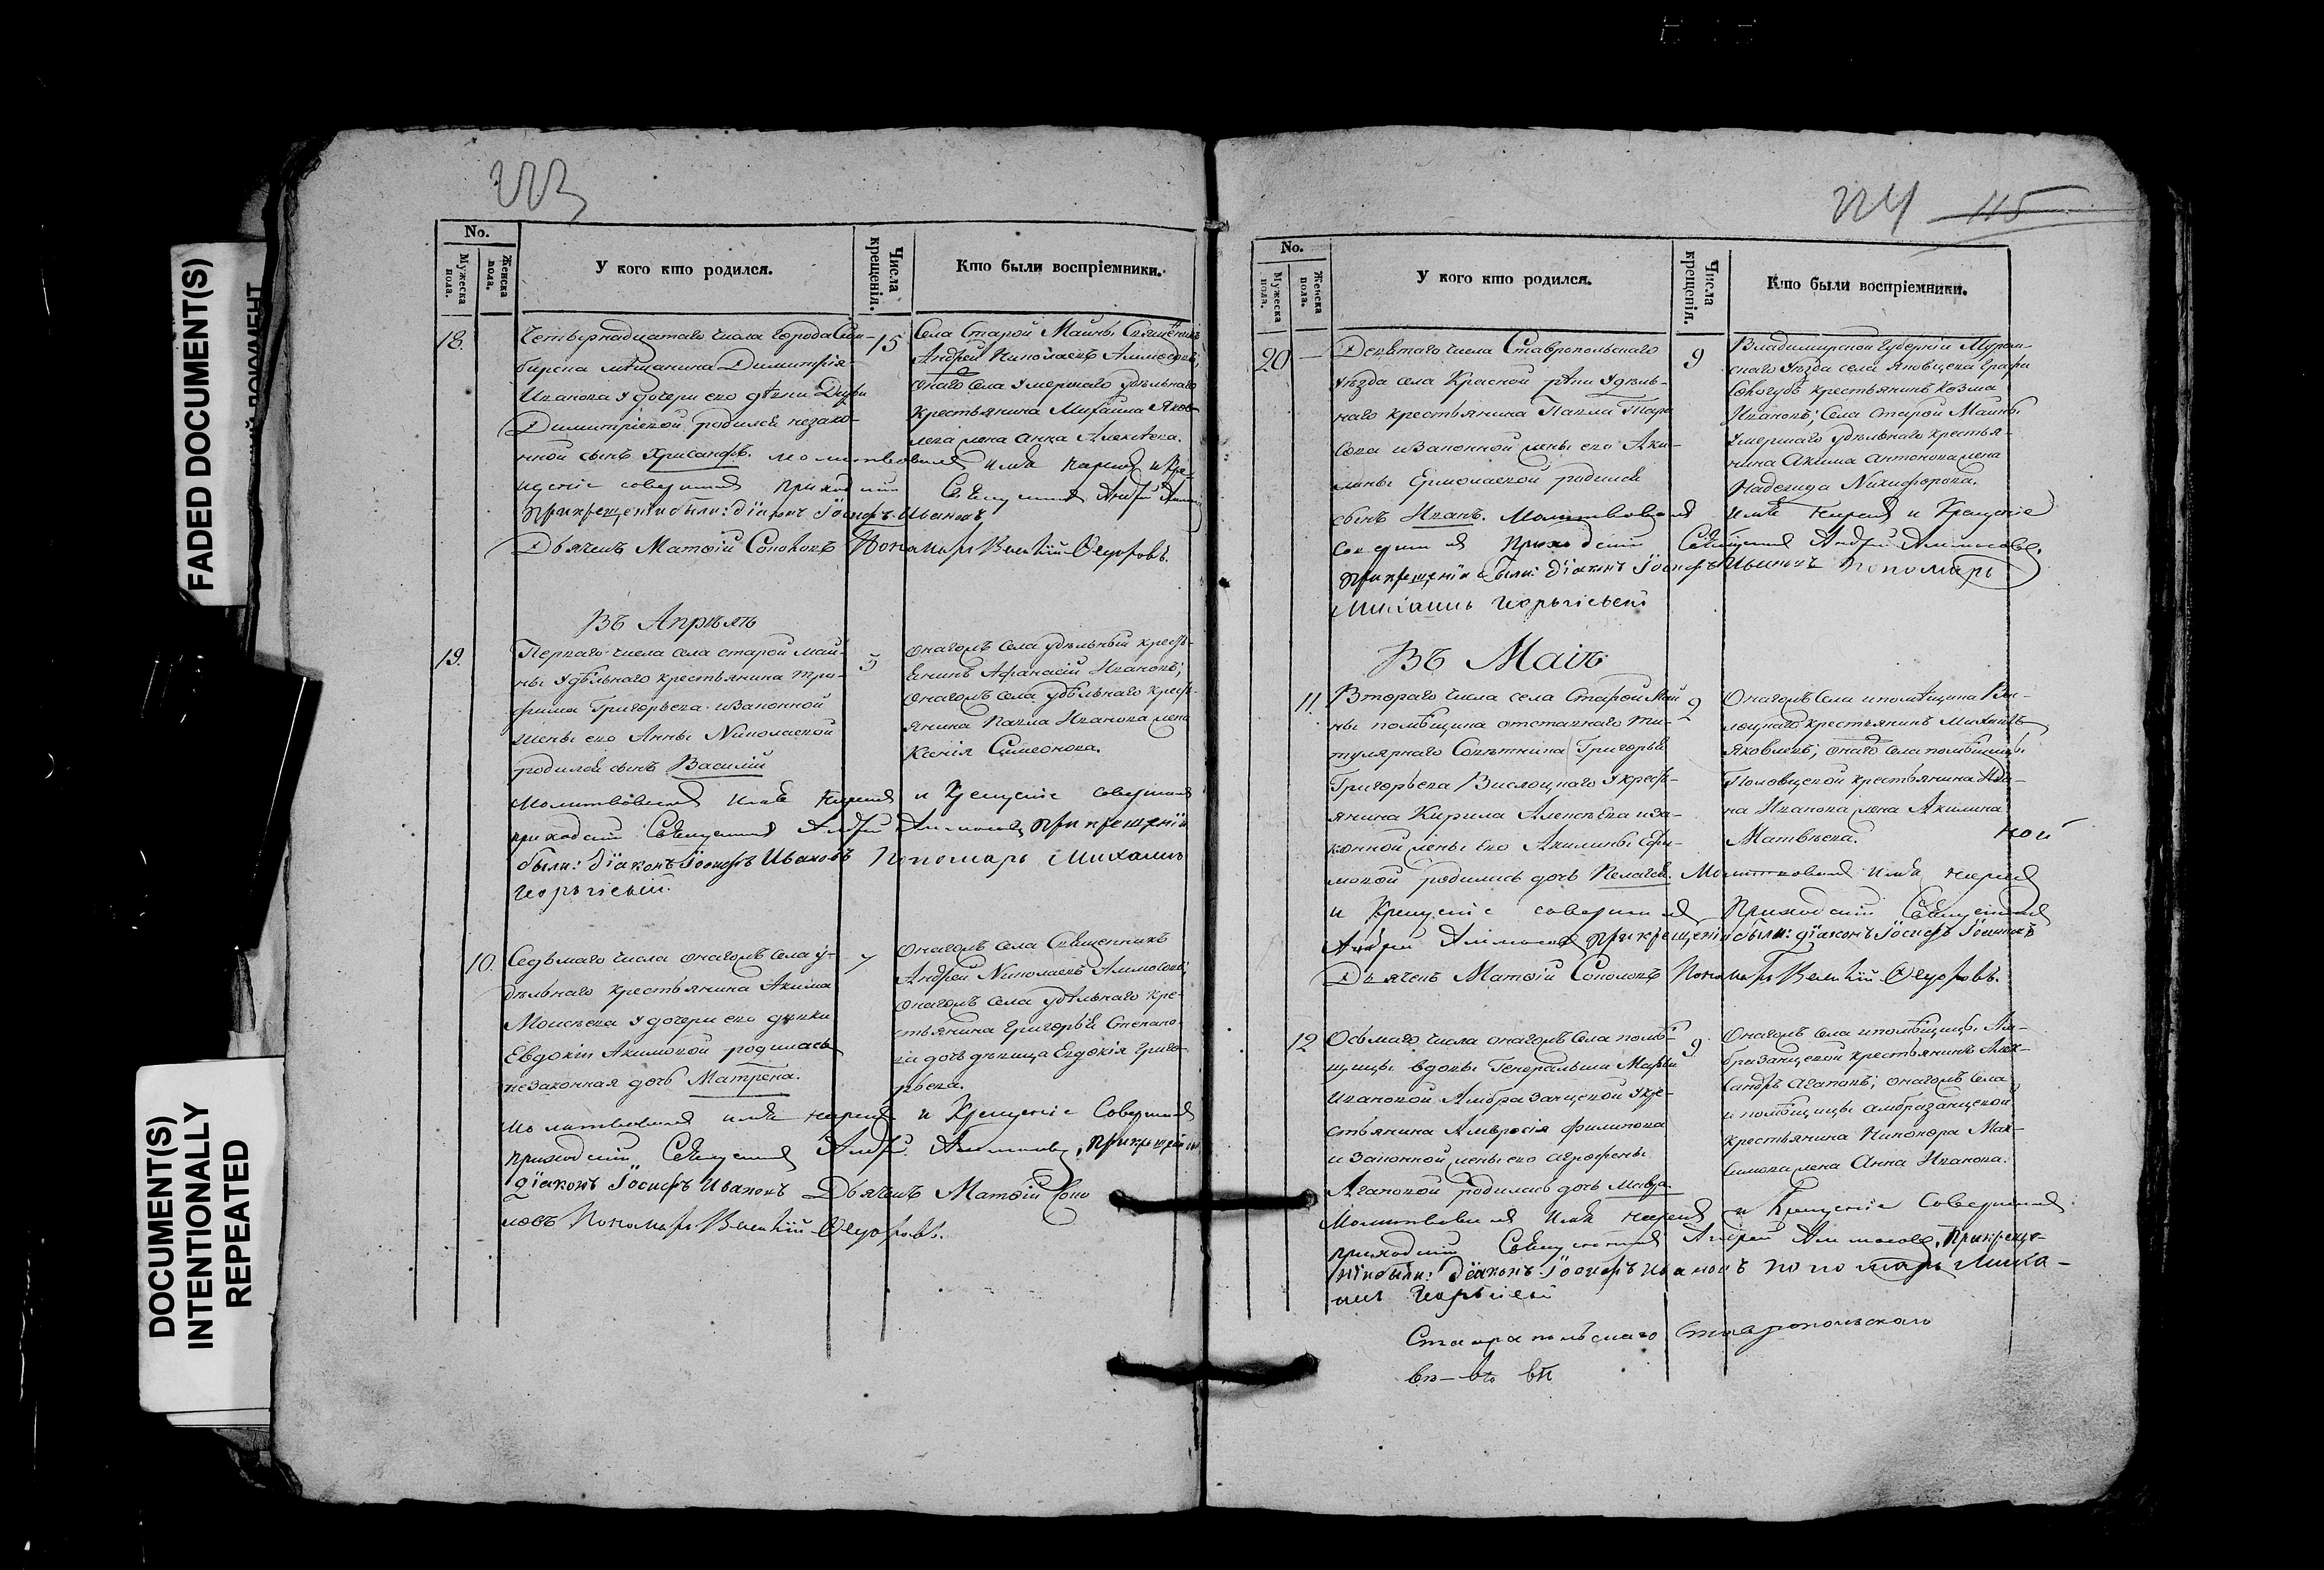 FADED DOCUMENT(S)
DOCUMENT(S)
INTENTIONALLY
REPEATED
223
No.
Мужеска пола.
Женска пола.
У кого кто родился.
Числа крещенія.
Кто были воспріемники.
18.
Четвернадцатаго числа города Син-
бирска мѣщанина Димитрія
Иванова у дочери его дѣвки
Димитріевой родился незако-
нной сынъ Хрисанфъ. молитвовалъ имя нарекъ и Кре-
щеніе совершилъ приходскій Священникъ Андрей
При крещеніи были: діаконъ Іосифъ Ивановъ
Дьячекъ Матвій Соколовъ Пономарь Василій Ѳедоровъ.
15
Села Старой Майны Священникъ
Андрей Николаевъ Аммосовъ,
онаго села умершаго удѣльнаго
крестьянина Михаила Яков-
лева жена Анна Алексѣева.
Въ Апрѣлѣ
19.
Перваго числа села старой май-
ны удѣльнаго крестьянина Тро-
фима Григорьева и законной
жены его Анны Николаевой
родился сынъ Василій
Молитвовалъ имя нарекъ и Крещеніе совершилъ
приходскій Священникъ Андрей Аммосовъ, При крещеніи
были: діаконъ Іосифъ Ивановъ Пономарь Михаилъ
Георгіевскій.
5
онагожъ села удѣльный кресть-
янинъ Афанасій Ивановъ;
онагожъ села удѣльнаго кресть-
янина Павла Иванова жена
Ксенія Симеонова.
10.
Седьмаго числа онагожъ села у-
дѣльнаго крестьянина Акима
Моисѣева у дочери его дѣвки
Евдокіи Акимовой родилась
незаконная дочь Матрена.
молитвовалъ имя нарекъ и Крещеніе Совершилъ
приходскій Священникъ Андрей Аммосовъ, При крещеніи
діаконъ Іосифъ Ивановъ Дьячекъ Матвій Соко
ловъ Пономарь Василій Ѳедоровъ.
7
Онагожъ села Священникъ
Андрей Николаевъ Аммосовъ;
онагожъ села удѣльнаго кре-
стьянина Григорья Степано-
ва дочь дѣвица Евдокія Григо-
рьева.
224 115
No.
Мужеска пола.
Женска пола.
У кого кто родился.
Числа крещенія.
Кто были воспріемники.
20
Девятаго числа Ставропольскаго
уѣзда села Красной рѣки удѣль-
наго крестьянина Павла Тара
сова и законной жены его Аку-
лины Ермолаевой родился
сынъ Иванъ. Молитвовалъ имя нарекъ и Крещеніе
совершилъ приходскій Священникъ Андрей Аммосовъ.
При крещеніи были: діаконъ Іосифъ Ивановъ Пономарь
Михаилъ Георгіевскій
9
Владимирской Губерніи Муром-
скаго Уѣзда села Яковцева Графи
крестьянинъ Козма
Ивановъ; Села старой Майны
умершаго удѣльнаго крестья-
нина Акима Антонова жена
Надежда Никифорова.
Въ Маіѣ
11.
Втораго числа села Старой Май
ны помѣщика отставнаго ти-
тулярнаго Совѣтника Григорья
Григорьева Вислоцкаго у кресть-
янина Кирила Алексѣева и за-
конной жены его Акилины Ефи-
мовой родилась дочь Пелагея. Молитвовалъ имя нарекъ
и Крещеніе совершилъ Приходскій Священникъ
Андрей Аммосовъ при крещеніи были: діаконъ Іосифъ
Дьячекъ Матвій Соколовъ Пономарь Василій Ѳедоровъ.
2
Онагожъ села и помѣщика Вис-
лоцкаго крестьянинъ Михаилъ
Яковлевъ; онаго села помѣщицы
крестьянина Ива-
на Иванова жена Акилина
Матвѣева.
ной
12
Осьмаго числа онагожъ села помѣ-
щицы вдовы Генеральши Марьи
Ивановой Амбразанцевой у кре-
стьянина Амвросія Филипова
и законной жены его Агрофены
Агаповой родилась дочь
Молитвовалъ имя нарекъ и Крещеніе Совершилъ
приходскій Священникъ Андрей Аммосовъ, При креще-
ніи были: діаконъ Іосифъ Ивановъ пономарь Миха-
илъ Георгіевскій
9
Онагожъ села и помѣщицы Ам-
бразанцевой крестьянинъ Алек-
сандръ Агаповъ; онагожъ села
и помѣщицы амбразанцевой
крестьянина Никонора Мак-
симова жена Анна Иванова.
Ставропольскаго Ставропольскаго